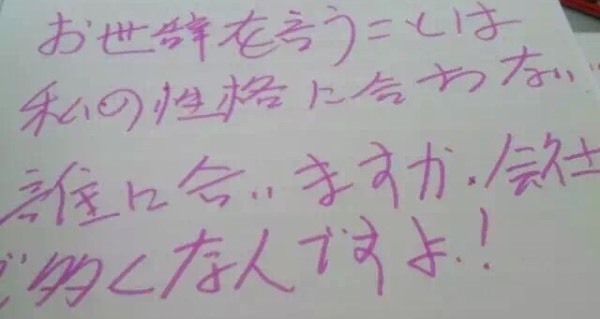 お世辞を言うことは
私の性格に合わない
誰に合いますか.会社
で多くな人ですよ.!